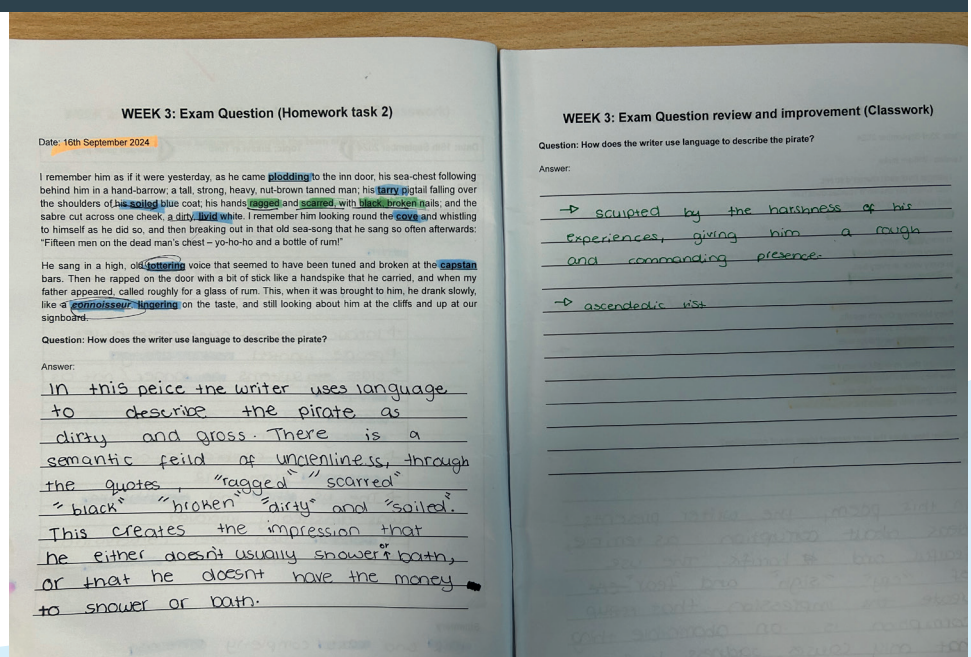 WEEK 3: Exam Question (Homework task 2)
Date: 16th September 2024
I remember him as if it were yesterday, as he came plodding to the inn door, his sea-chest following
behind him in a hand-barrow; a tall, strong, heavy, nut-brown tanned man; his tarry pigtail falling over
the shoulders of his soiled blue coat; his hands ragged and scarred, with black, broken nails; and the
sabre cut across one cheek, a dirty, livid white. I remember him looking round the cove and whistling
to himself as he did so, and then breaking out in that old sea-song that he sang so often afterwards:
“Fifteen men on the dead man's chest – yo-ho-ho and a bottle of rum!”
He sang in a high, old tottering voice that seemed to have been tuned and broken at the capstan
bars. Then he rapped on the door with a bit of stick like a handspike that he carried, and when my
father appeared, called roughly for a glass of rum. This, when it was brought to him, he drank slowly,
like a connoisseur lingering on the taste, and still looking about him at the cliffs and up at our
signboard.
Question: How does the writer use language to describe the pirate?
Answer:
In this peice the writer uses language
to describe the pirate as
dirty and gross. There is a
semantic feild of unclenliness, through
the quotes, "ragged" "scarred"
"black" "broken" "dirty" and "soiled".
This creates the impression that
he either doesn't usually shower or bath,
or that he doesnt have the money
to shower or bath.
WEEK 3: Exam Question review and improvement (Classwork)
Question: How does the writer use language to describe the pirate?
Answer:
→ sculpted by the harshness of his
experiences, giving him a rough
and commanding presence.
→ ascendedic